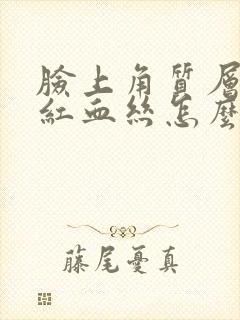 臉上角質層
紅血絲怎麼
藤尾憂真